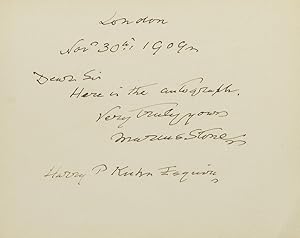 London
Nov 30th, 1909
Dear Sir
Here is the autograph.
Very truly yours
Marcus Stone
Harry P Kuhn Esquire